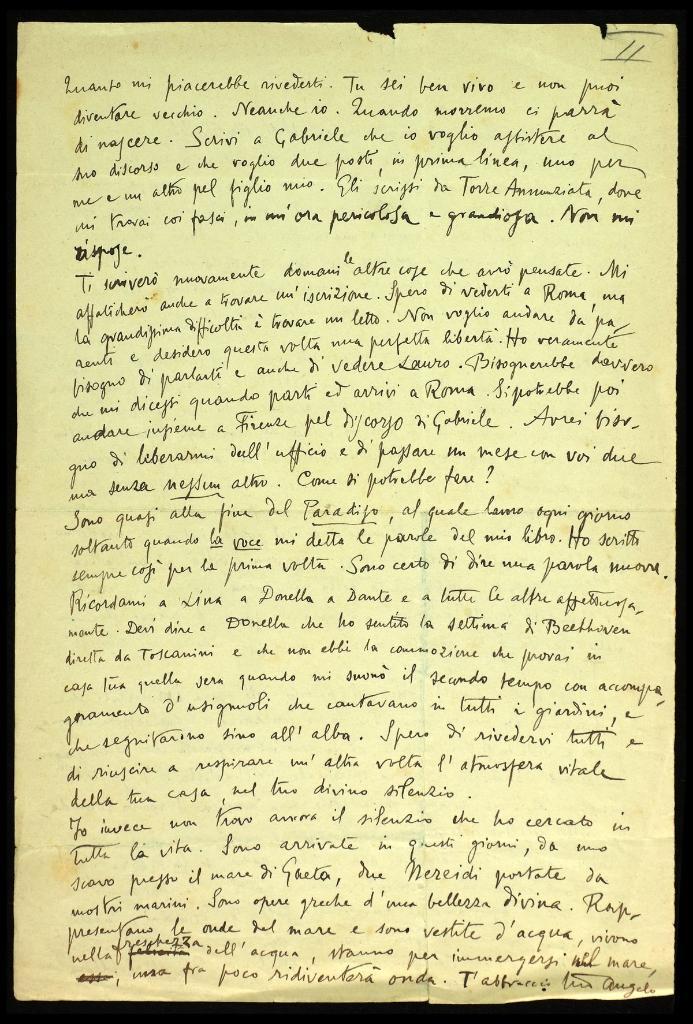 11
Quanto mi piacerebbe rivederti. Tu sei ben vivo e non puoi
diventare vecchio. Neanche io. Quando morremo ci parrà
di nascere. Scrivi a Gabriele che io voglio assistere al
suo discorso e che voglio due posti, in prima linea, uno per
me e un altro pel figlio mio. Gli scrissi da Torre Annunziata, dove
mi trovai coi fasci, in un'ora pericolosa e grandiosa. Non mi
rispose.
Ti scriverò nuovamente domani le altre cose che avrò pensate. Mi
affaticherò anche a trovare un'iscrizione. Spero di vederti a Roma, ma
la grandissima difficoltà è trovare un letto. Non voglio andare da pa-
renti e desidero questa volta una perfetta libertà. Ho veramente
bisogno di parlarti e anche di vedere Lauro. Bisognerebbe davvero
che mi dicessi quando parti ed arrivi a Roma. Si potrebbe poi
andare insieme a Firenze pel discorso di Gabriele. Avrei biso-
gno di liberarmi dell'ufficio e di passare un mese con voi due
ma senza nessun altro. Come si potrebbe fare?
Sono quasi alla fine del Paradiso, al quale lavoro ogni giorno
soltanto quando la voce mi detta le parole del mio libro. Ho scritto
sempre così per la prima volta. Sono certo di dire una parola nuova.
Ricordami a Lina a Donella a Dante e a tutte le altre affettuosa-
mente. Devi dire a Donella che ho sentito la settima di Beethoven
diretta da Toscanini e che non ebbi la commozione che provai in
casa tua quella sera quando mi suonò il secondo tempo con accompa-
gnamento d'usignuoli che cantavano in tutti i giardini, e
che seguitarono sino all'alba. Spero di rivedervi tutti e
di riuscire a respirare un'altra volta l'atmosfera vitale
della tua casa, nel tuo divino silenzio.
Io invece non trovo ancora il silenzio che ho cercato in
tutta la vita. Sono arrivate in questi giorni, da uno
scavo presso il mare di Gaeta, due Nereidi portate da
mostri marini. Sono opere greche d'una bellezza divina. Rap-
presentano le onde del mare e sono vestite d'acqua, vivono
nella freschezza dell'acqua, stanno per immergersi nel mare,
una fra poco ridiventerà onda. T'abbraccio tuo Angelo